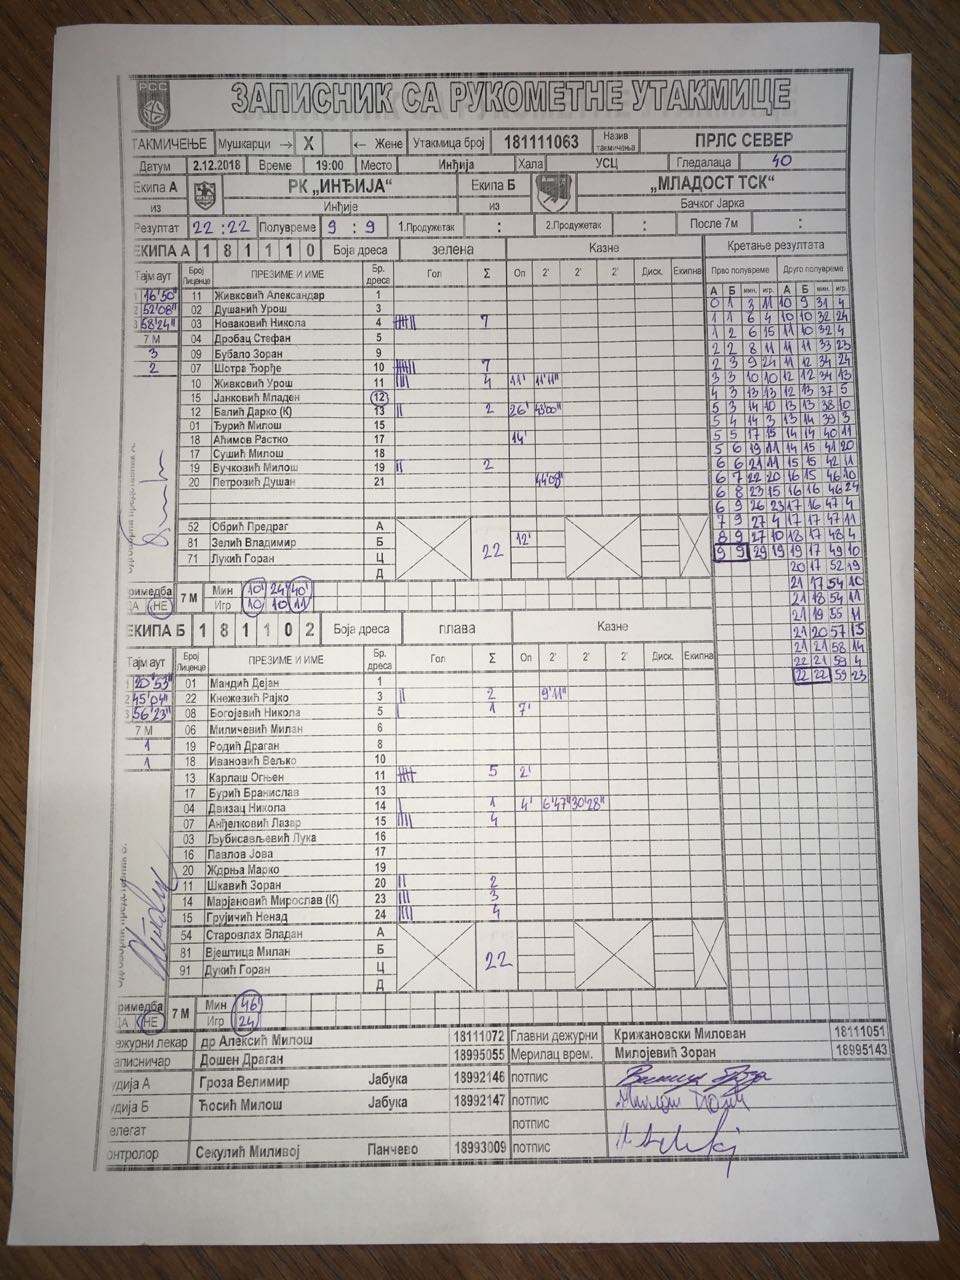 РСС
ЗАПИСНИК СА РУКОМЕТНЕ УТАКМИЦЕ
ТАКМИЧЕЊЕ Мушкарци → X ← Жене Утакмица број 181111063 Назив такмичења ПРЛС СЕВЕР
Датум 2.12.2018 Време 19:00 Место Инђија Хала УСЦ Гледалаца 40
Екипа А РК „ИНЂИЈА“ Екипа Б „МЛАДОСТ ТСК“
из Инђије из Бачког Јарка
Резултат 22 : 22 Полувреме 9 : 9 1.Продужетак : 2.Продужетак : После 7м :
ЕКИПА А 1 8 1 1 1 0 Боја дреса зелена Казне Кретање резултата
Тајм аут Број Лиценце ПРЕЗИМЕ И ИМЕ Бр. дреса Гол Σ Оп 2' 2' 2' Диск. Екипна Прво полувреме Друго полувреме
А Б мин. игр. А Б мин. игр.
1 16'50" 11 Живковић Александар 1
2 52'08" 02 Душанић Урош 3
3 58'24" 03 Новаковић Никола 4 7
7 М 04 Дробац Стефан 5
3 09 Бубало Зоран 9
2 07 Шотра Ђорђе 10 7
10 Живковић Урош 11 4 11' 11'11"
15 Јанковић Младен 12
12 Балић Дарко (К) 13 2 26' 43'00"
01 Ђурић Милош 15
18 Аћимов Растко 17 14'
17 Сушић Милош 18
19 Вучковић Милош 19 2
20 Петровић Душан 21 44'08"
52 Обрић Предраг А
81 Зелић Владимир Б 22 12'
71 Лукић Горан Ц
Д
0 1 3 11 10 9 31 4
1 1 6 4 10 10 32 24
1 2 6 15 11 10 32 4
2 2 8 11 11 11 33 23
2 3 9 24 11 12 34 24
3 3 10 10 12 12 34 13
4 3 13 13 12 13 37 5
5 3 14 10 13 13 38 10
5 4 14 3 13 14 39 3
5 5 17 15 14 14 40 11
5 6 19 11 14 15 41 20
6 6 21 11 15 15 42 11
6 7 22 20 16 15 46 10
6 8 23 15 16 16 46 24
6 9 26 23 17 16 47 4
7 9 27 4 17 17 47 11
8 9 27 10 18 17 48 4
9 9 29 19 19 17 49 10
20 17 52 19
21 17 54 10
21 18 54 11
21 19 55 11
21 20 57 15
21 21 58 14
22 21 59 4
22 22 59 23
римедба 7 М Мин 10' 24' 40'
ДА НЕ Игр 10 10 11
ЕКИПА Б 1 8 1 1 0 2 Боја дреса плава Казне
Тајм аут Број Лиценце ПРЕЗИМЕ И ИМЕ Бр. дреса Гол Σ Оп 2' 2' 2' Диск. Екипна
1 20'53" 01 Мандић Дејан 1
2 45'04" 22 Кнежевић Рајко 3 2 9'11"
3 56'23" 08 Богојевић Никола 5 1 7'
7 М 06 Миличевић Милан 6
1 19 Родић Драган 8
1 18 Ивановић Вељко 10
13 Карлаш Огњен 11 5 2'
17 Бурић Бранислав 13
04 Двизац Никола 14 1 4' 6'47" 30'28"
07 Анђелковић Лазар 15 4
03 Љубисављевић Лука 16
16 Павлов Јова 17
20 Ждрња Марко 19
11 Шкавић Зоран 20 2
14 Марјановић Мирослав (К) 23 3
15 Грујичић Ненад 24 4
54 Старовлах Владан А
81 Вјештица Милан Б 22
91 Дукић Горан Ц
Д
римедба 7 М Мин 46'
ДА НЕ Игр 24
ежурни лекар др Алексић Милош 18111072 Главни дежурни Крижановски Милован 18111051
аписничар Дошен Драган 18995055 Мерилац врем. Милојевић Зоран 18995143
удија А Гроза Велимир Јабука 18992146 потпис
удија Б Ћосић Милош Јабука 18992147 потпис
елегат потпис
онтролор Секулић Миливој Панчево 18993009 потпис